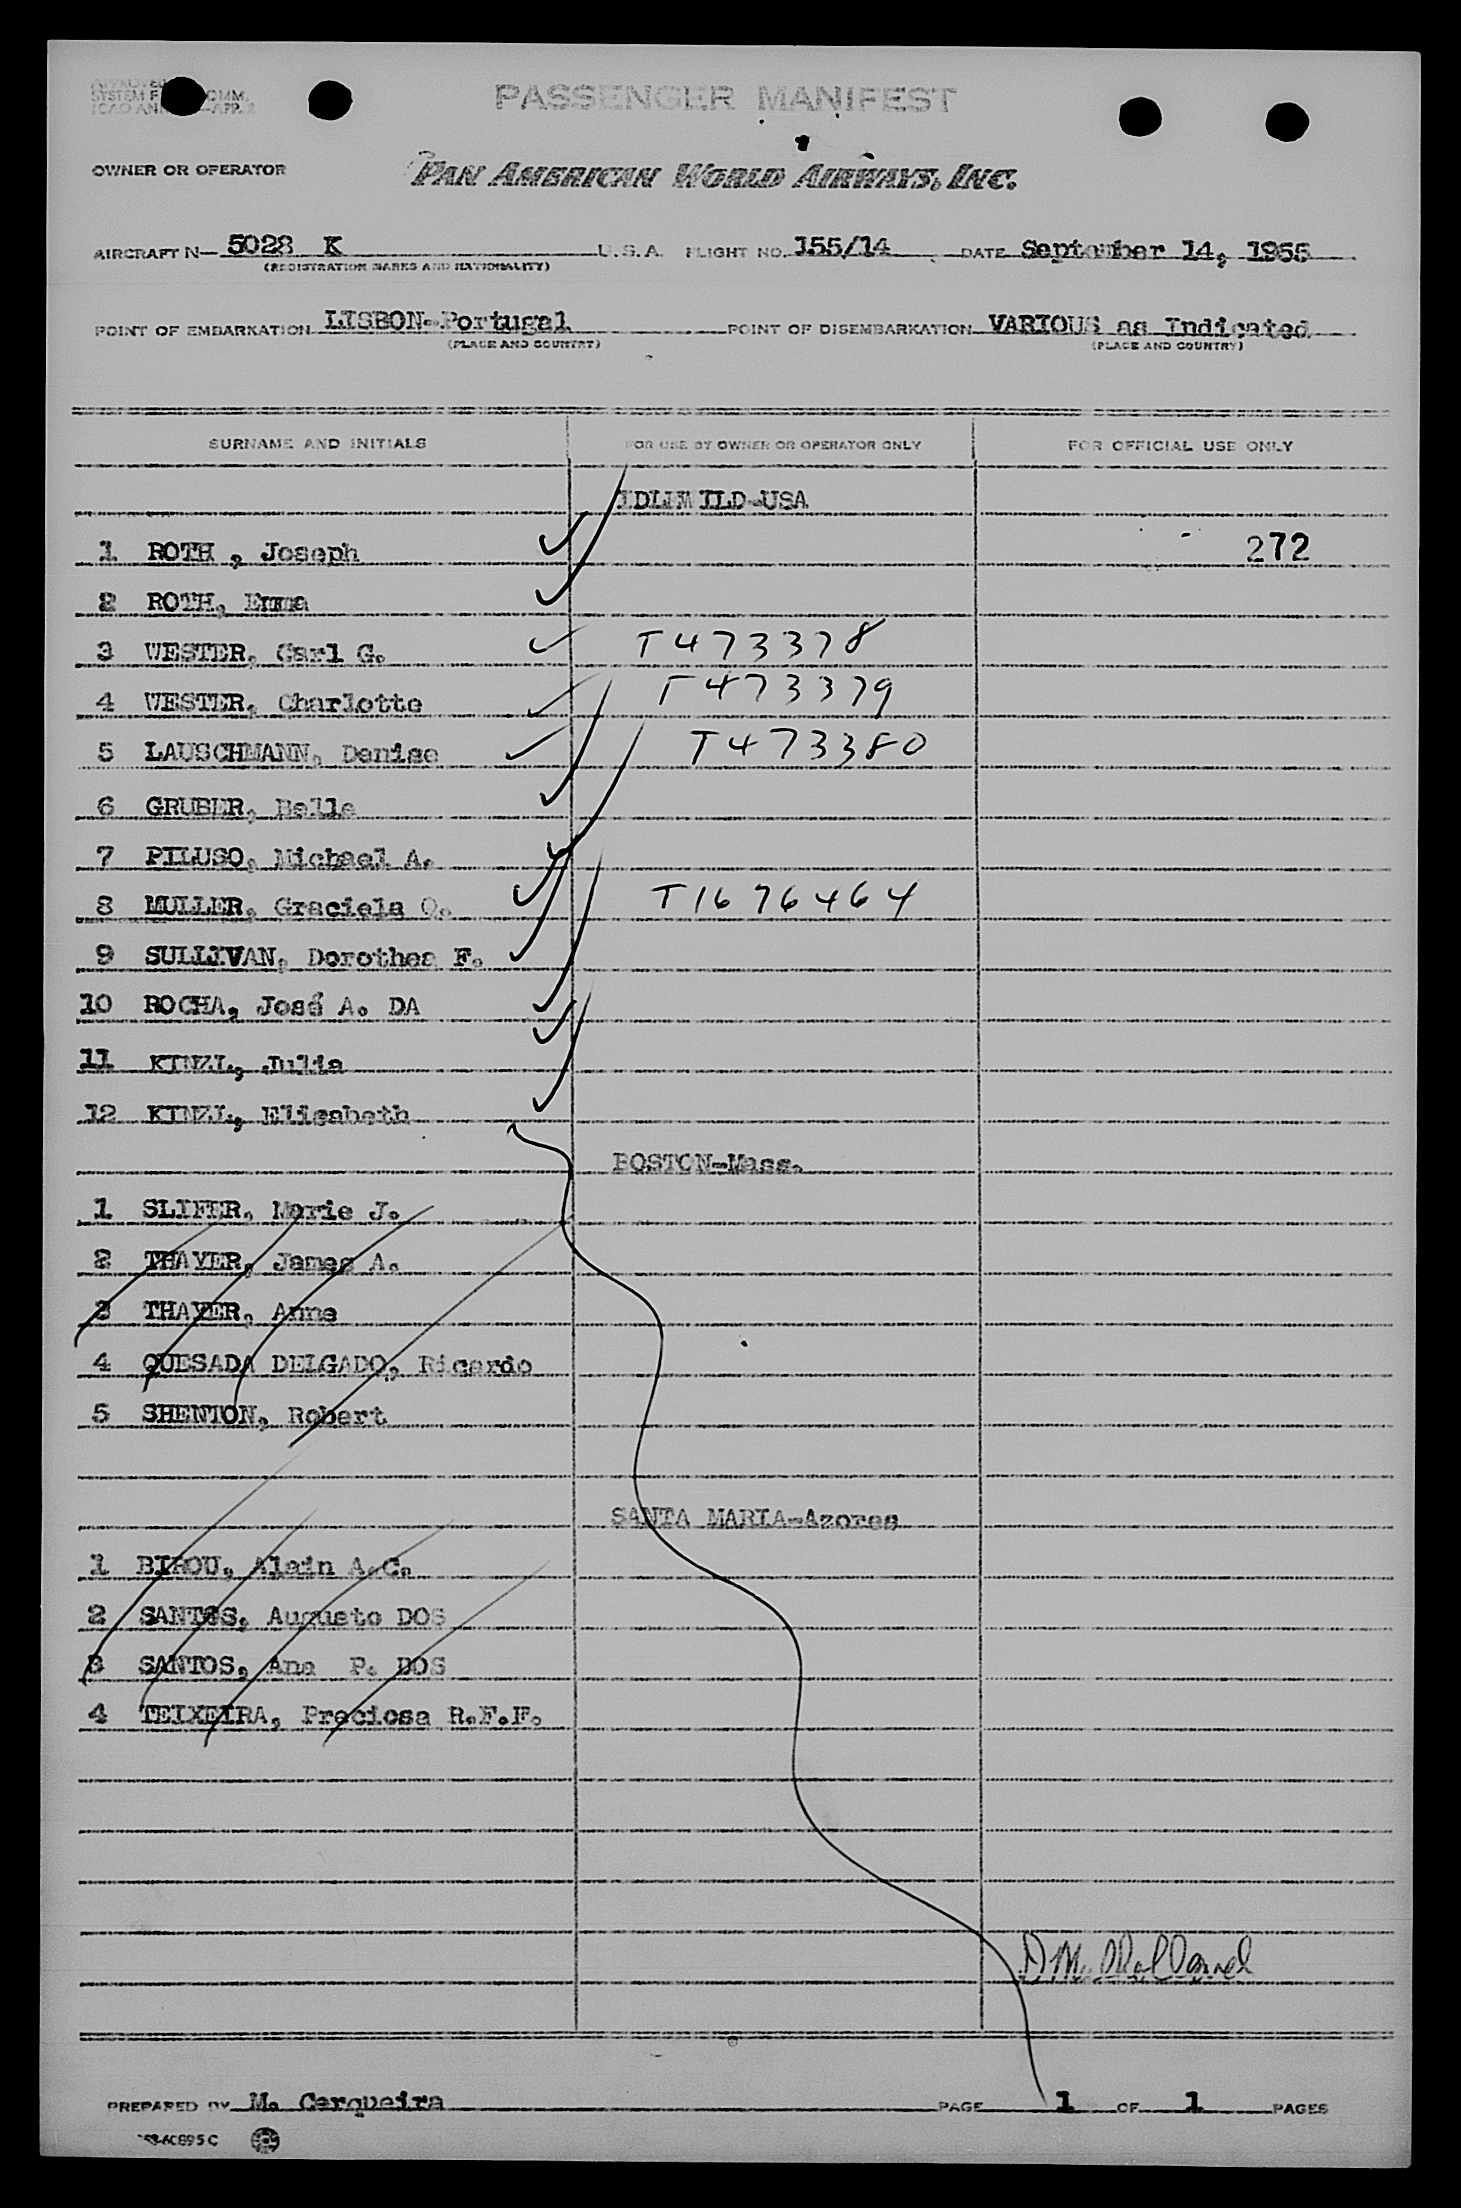 PASSENGER MANIFEST
OWNER OR OPERATOR PAN AMERICAN WORLD AIRWAYS, INC.
AIRCRAFT N- 5028 K U.S.A. FLIGHT NO. 155/14 DATE September 14, 1955
(REGISTRATION MARKS AND NATIONALITY)
POINT OF EMBARKATION LISBON-Portugal POINT OF DISEMBARKATION VARIOUS as Indicated
(PLACE AND COUNTRY) (PLACE AND COUNTRY)
SURNAME AND INITIALS FOR USE BY OWNER OR OPERATOR ONLY FOR OFFICIAL USE ONLY
IDLEWILD-USA
1 ROTH , Joseph 272
2 ROTH, Emma
3 WESTER, Carl G. T473378
4 WESTER, Charlotte T473379
5 LAUSCHMANN, Denise T473380
6 GRUBER, Belle
7 PILUSO, Michael A.
8 MULLER, Graciela O. T1676464
9 SULLIVAN, Dorothea F.
10 ROCHA, José A. DA
11 KINZL, Julia
12 KINZL, Elisabeth
BOSTON-Mass.
1 SLIFER, Marie J.
2 THAYER, James A.
3 THAYER, Anne
4 QUESADA DELGADO, Ricardo
5 SHENTON, Robert
SANTA MARIA-Azores
1 BIROU, Alain A.C.
2 SANTOS, Augusto DOS
3 SANTOS, Ana P. DOS
4 TEIXEIRA, Preciosa R.F.F.
PREPARED BY M. Cerqueira PAGE 1 OF 1 PAGES